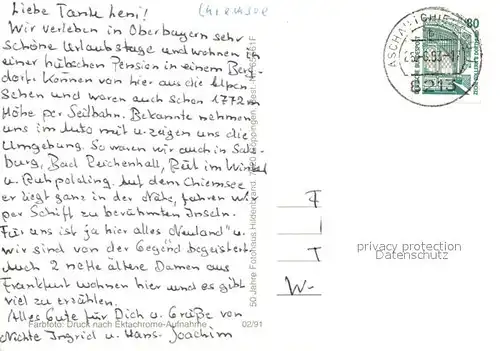 Liebe Tante Leni!
Wir verleben in Oberbayern sehr
schöne Urlaubstage und wohnen in
einer hübschen Pension in einem Berg-
dorf. Können von hier aus die Alpen
sehen und waren auch schon 1772m
Höhe per Seilbahn. Bekannte nehmen
uns im Auto mit u. zeigen uns die
Umgebung. So waren wir auch in Salz-
burg, Bad Reichenhall, Reit im Winkel
u. Ruhpolding. Auf dem Chiemsee
er liegt ganz in der Nähe, fuhren wir
per Schiff zu berühmten Inseln.
Für uns ist ja hier alles "Neuland" u.
wir sind von der Gegend begeistert.
Auch 2 nette ältere Damen aus
Frankfurt wohnen hier und es gibt
viel zu erzählen.
Alles Gute für Dich u. Grüße von
Nichte Ingrid u. Hans-Joachim
Farbfoto: Druck nach Ektachrome-Aufnahme 02/91
50 Jahre Fotohaus Hildenbrand
80
ASCHAU I CHIE
F
I
T
W-
privacy protection